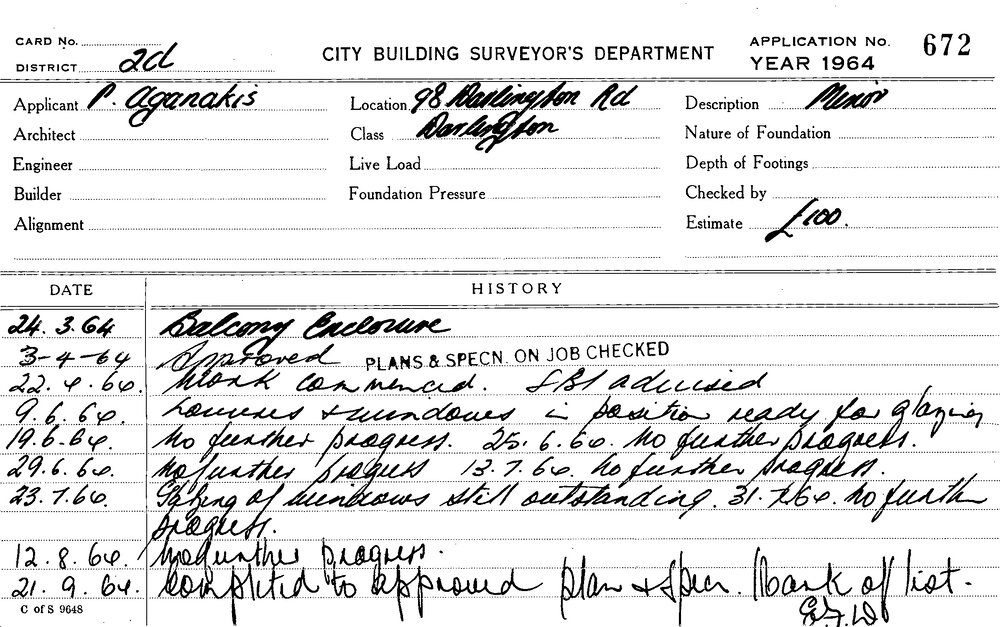 CARD No.
DISTRICT 2d
CITY BUILDING SURVEYOR'S DEPARTMENT
APPLICATION No. 672
YEAR 1964
Applicant P. Aganakis
Location 98 Darlington Rd
Description Minor
Architect
Class Darlington
Nature of Foundation
Engineer
Live Load
Depth of Footings
Builder
Foundation Pressure
Checked by
Alignment
Estimate £100.
DATE HISTORY
24.3.64 Balcony Enclosure
3-4-64 Approved PLANS & SPECN. ON JOB CHECKED
22.4.64. Work commenced. SBI advised
9.6.64. Louvres & windows in position ready for glazing
19.6.64. No further progress. 25.6.64. No further progress.
29.6.64. No further progress 13.7.64. No further progress.
23.7.64. Glazing of windows still outstanding. 31.7.64. No further
progress.
12.8.64. No further progress.
21.9.64. Completed to approved plan & specn. Mark off list.
C of S 9648